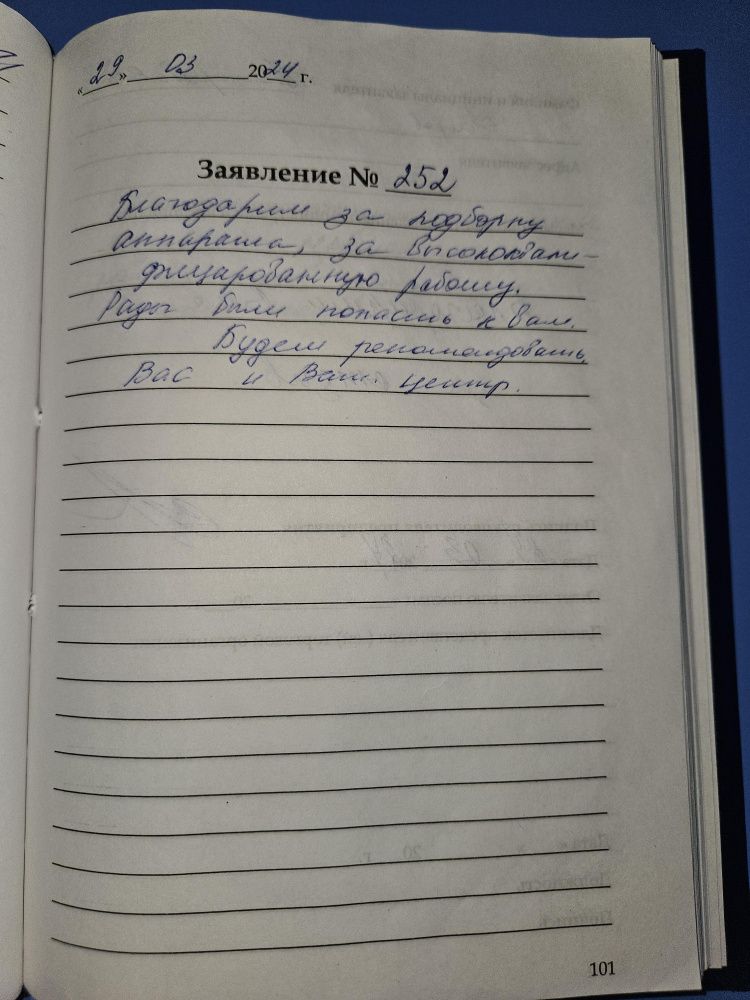 «29» 03 2024 г.
Заявление № 252
Благодарим за подборку
аппарата, за высококвали-
фицированную работу.
Рады были попасть к Вам.
Будем рекомендовать
Вас и Ваш центр.
101